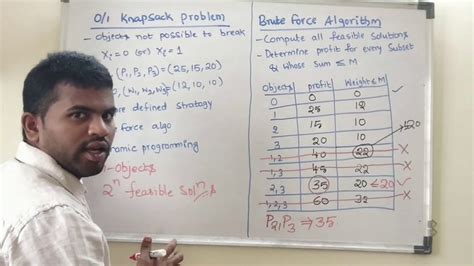 0/1 Knapsack Problem
- Objects not possible to break
Xi = 0 (or) Xi = 1
(P1, P2, P3) = (25, 15, 20)
(W1, W2, W3) = (12, 10, 10)
re defined strategy
force algo
namic programming
- Objects
2^n feasible soln's
Brute Force Algorithm
- Compute all feasible solutions
- Determine profit for every Subset
& whose Sum ≤ M
Objects profit Weight ≤ M
0 0 0 ✓
1 25 12
2 15 10
3 20 10
1,2 40 22 >20 ×
1,3 45 22 ×
2,3 35 20 ≤ 20 ✓
1,2,3 60 32 ×
P2, P3 ⇒ 35